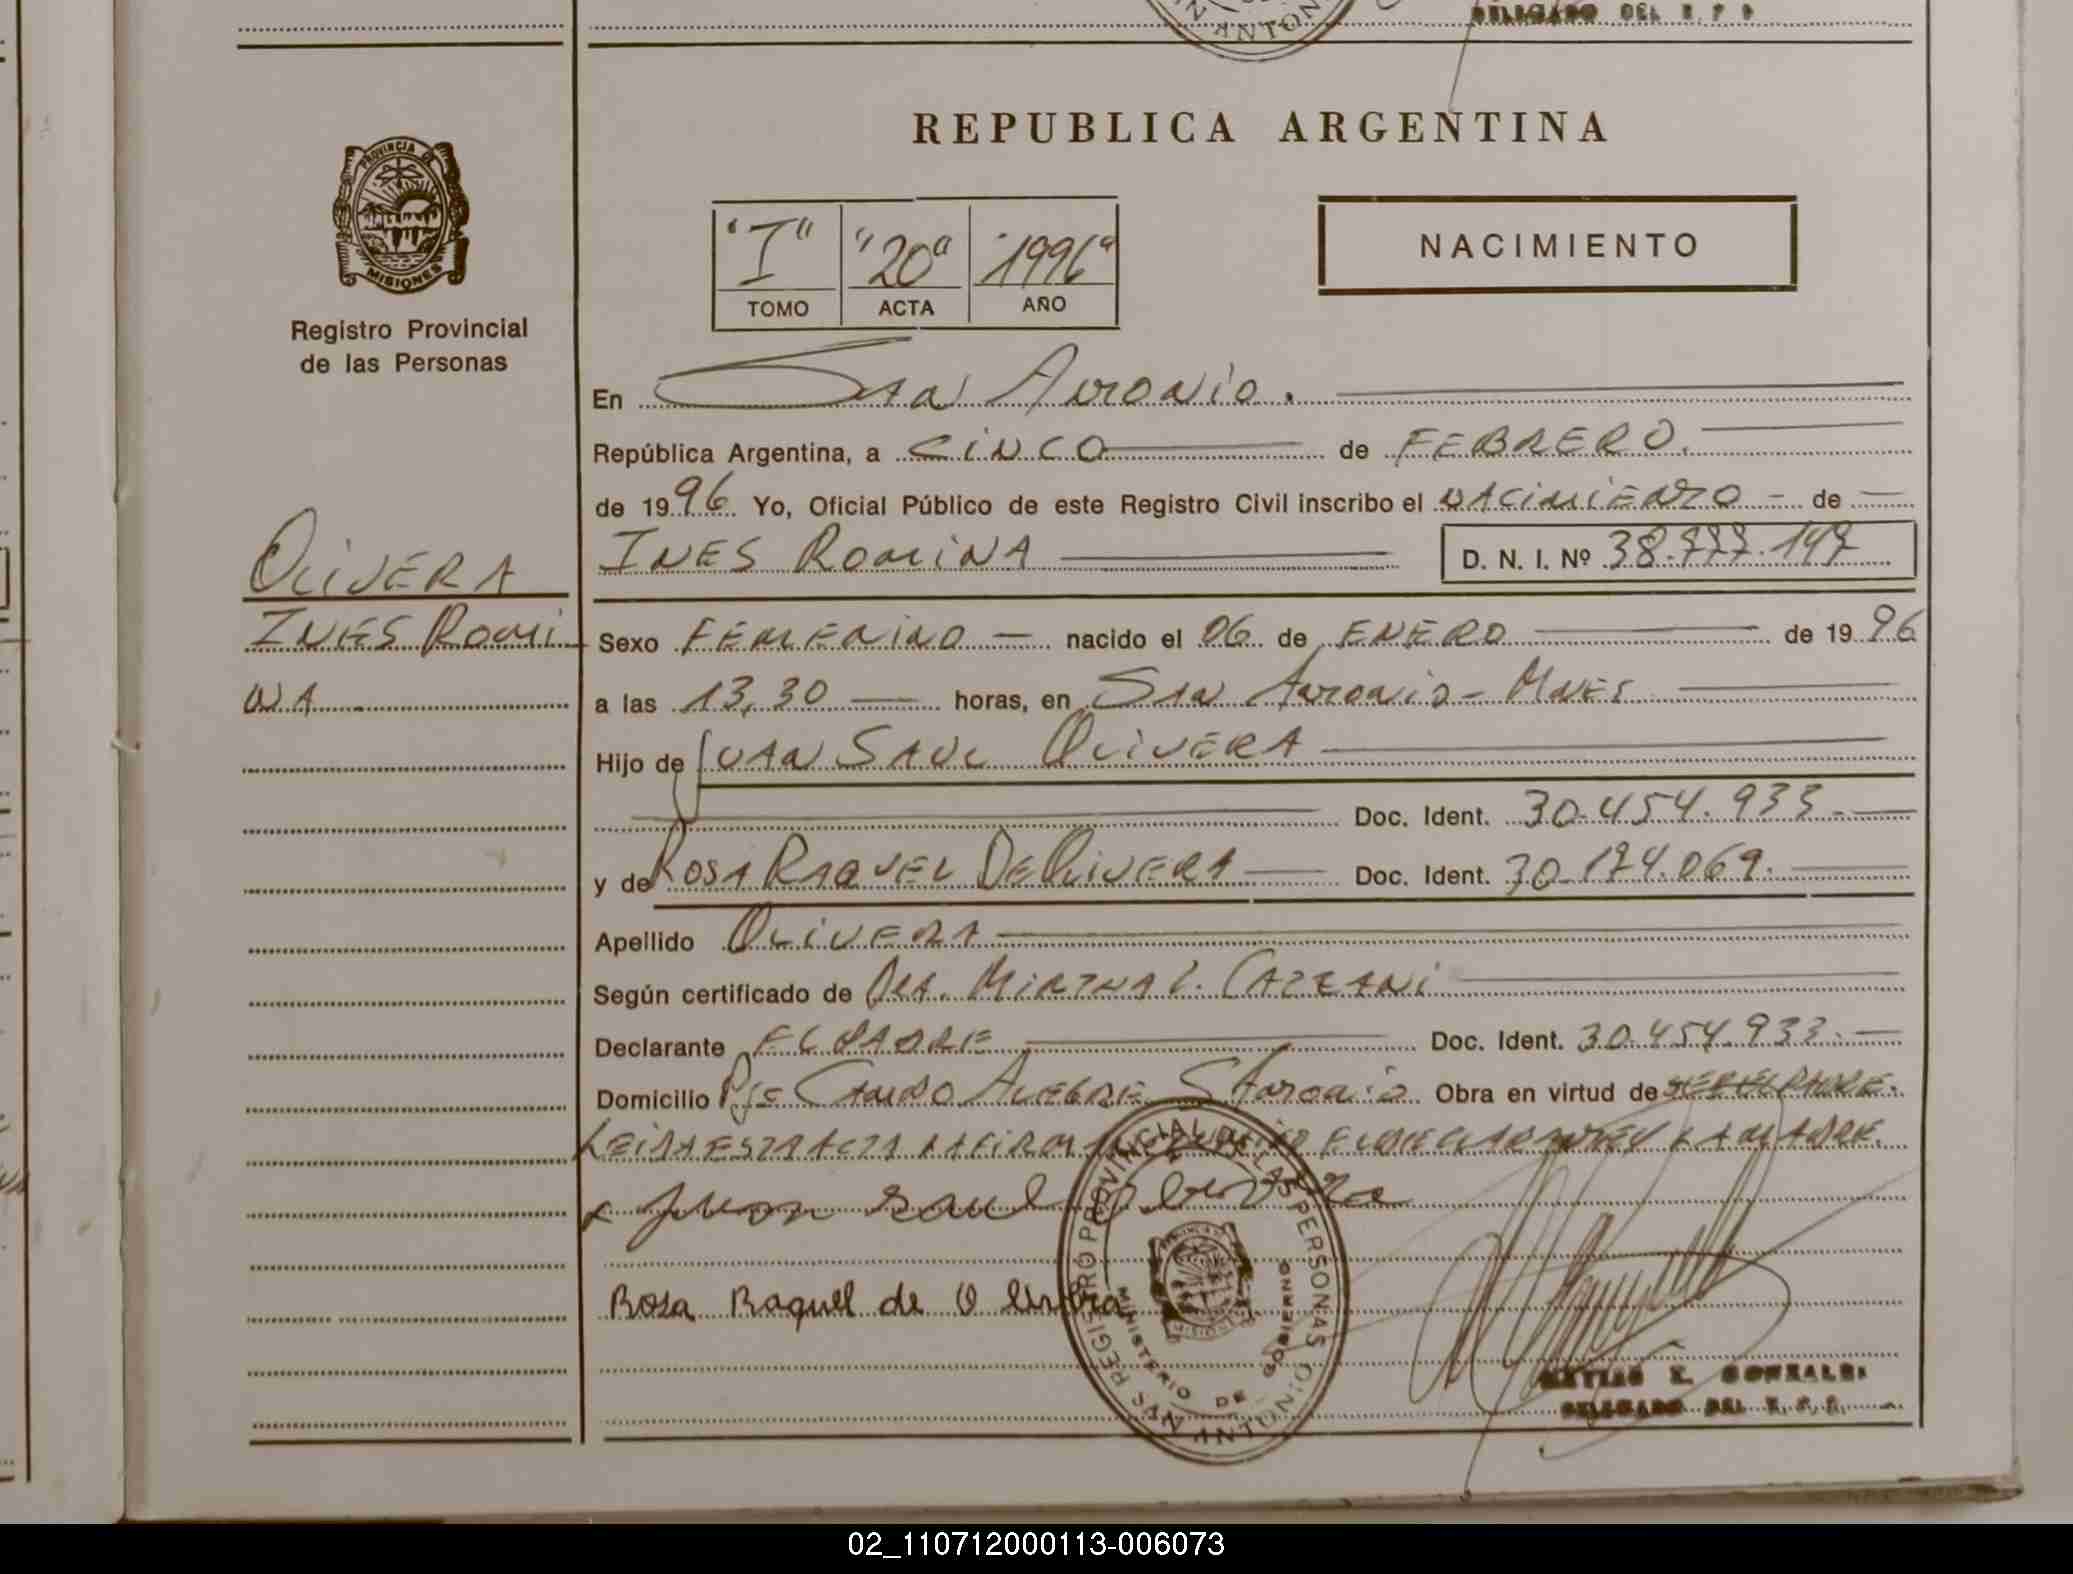 DELEGADO DEL R. P. P.
REPUBLICA ARGENTINA
PROVINCIA DE MISIONES
Registro Provincial
de las Personas
"I" "20" "1996"
TOMO ACTA AÑO
NACIMIENTO
En San Antonio.
República Argentina, a CINCO de FEBRERO.
de 1996. Yo, Oficial Público de este Registro Civil inscribo el NACIMIENTO - de
OLIVERA
INES ROMI
NA
INES ROMINA D. N. I. Nº 38.777.147
Sexo FEMENINO nacido el 06 de ENERO de 1996
a las 13,30 horas, en San Antonio - Mnes
Hijo de JUAN SAUL OLIVERA
Doc. Ident. 30.454.933.
y de ROSA RAQUEL DE OLIVERA Doc. Ident. 30.174.069.
Apellido OLIVERA
Según certificado de DRA. MIRTHA L. CAZZANI
Declarante EL PADRE Doc. Ident. 30.454.933.
Domicilio Pje CAMPO ALEGRE S Antonio Obra en virtud de SER EL PADRE.
LEIDA ESTA ACTA LA FIRMA EL DECLARANTE Y LA MADRE.
x Juan Saul Olivera
Rosa Raquel de Olivera
REGISTRO PROVINCIAL DE LAS PERSONAS
MINISTERIO DE GOBIERNO
SAN ANTONIO
MISIONES
GONZALEZ
DELEGADO DEL R. P. P.
02_110712000113-006073